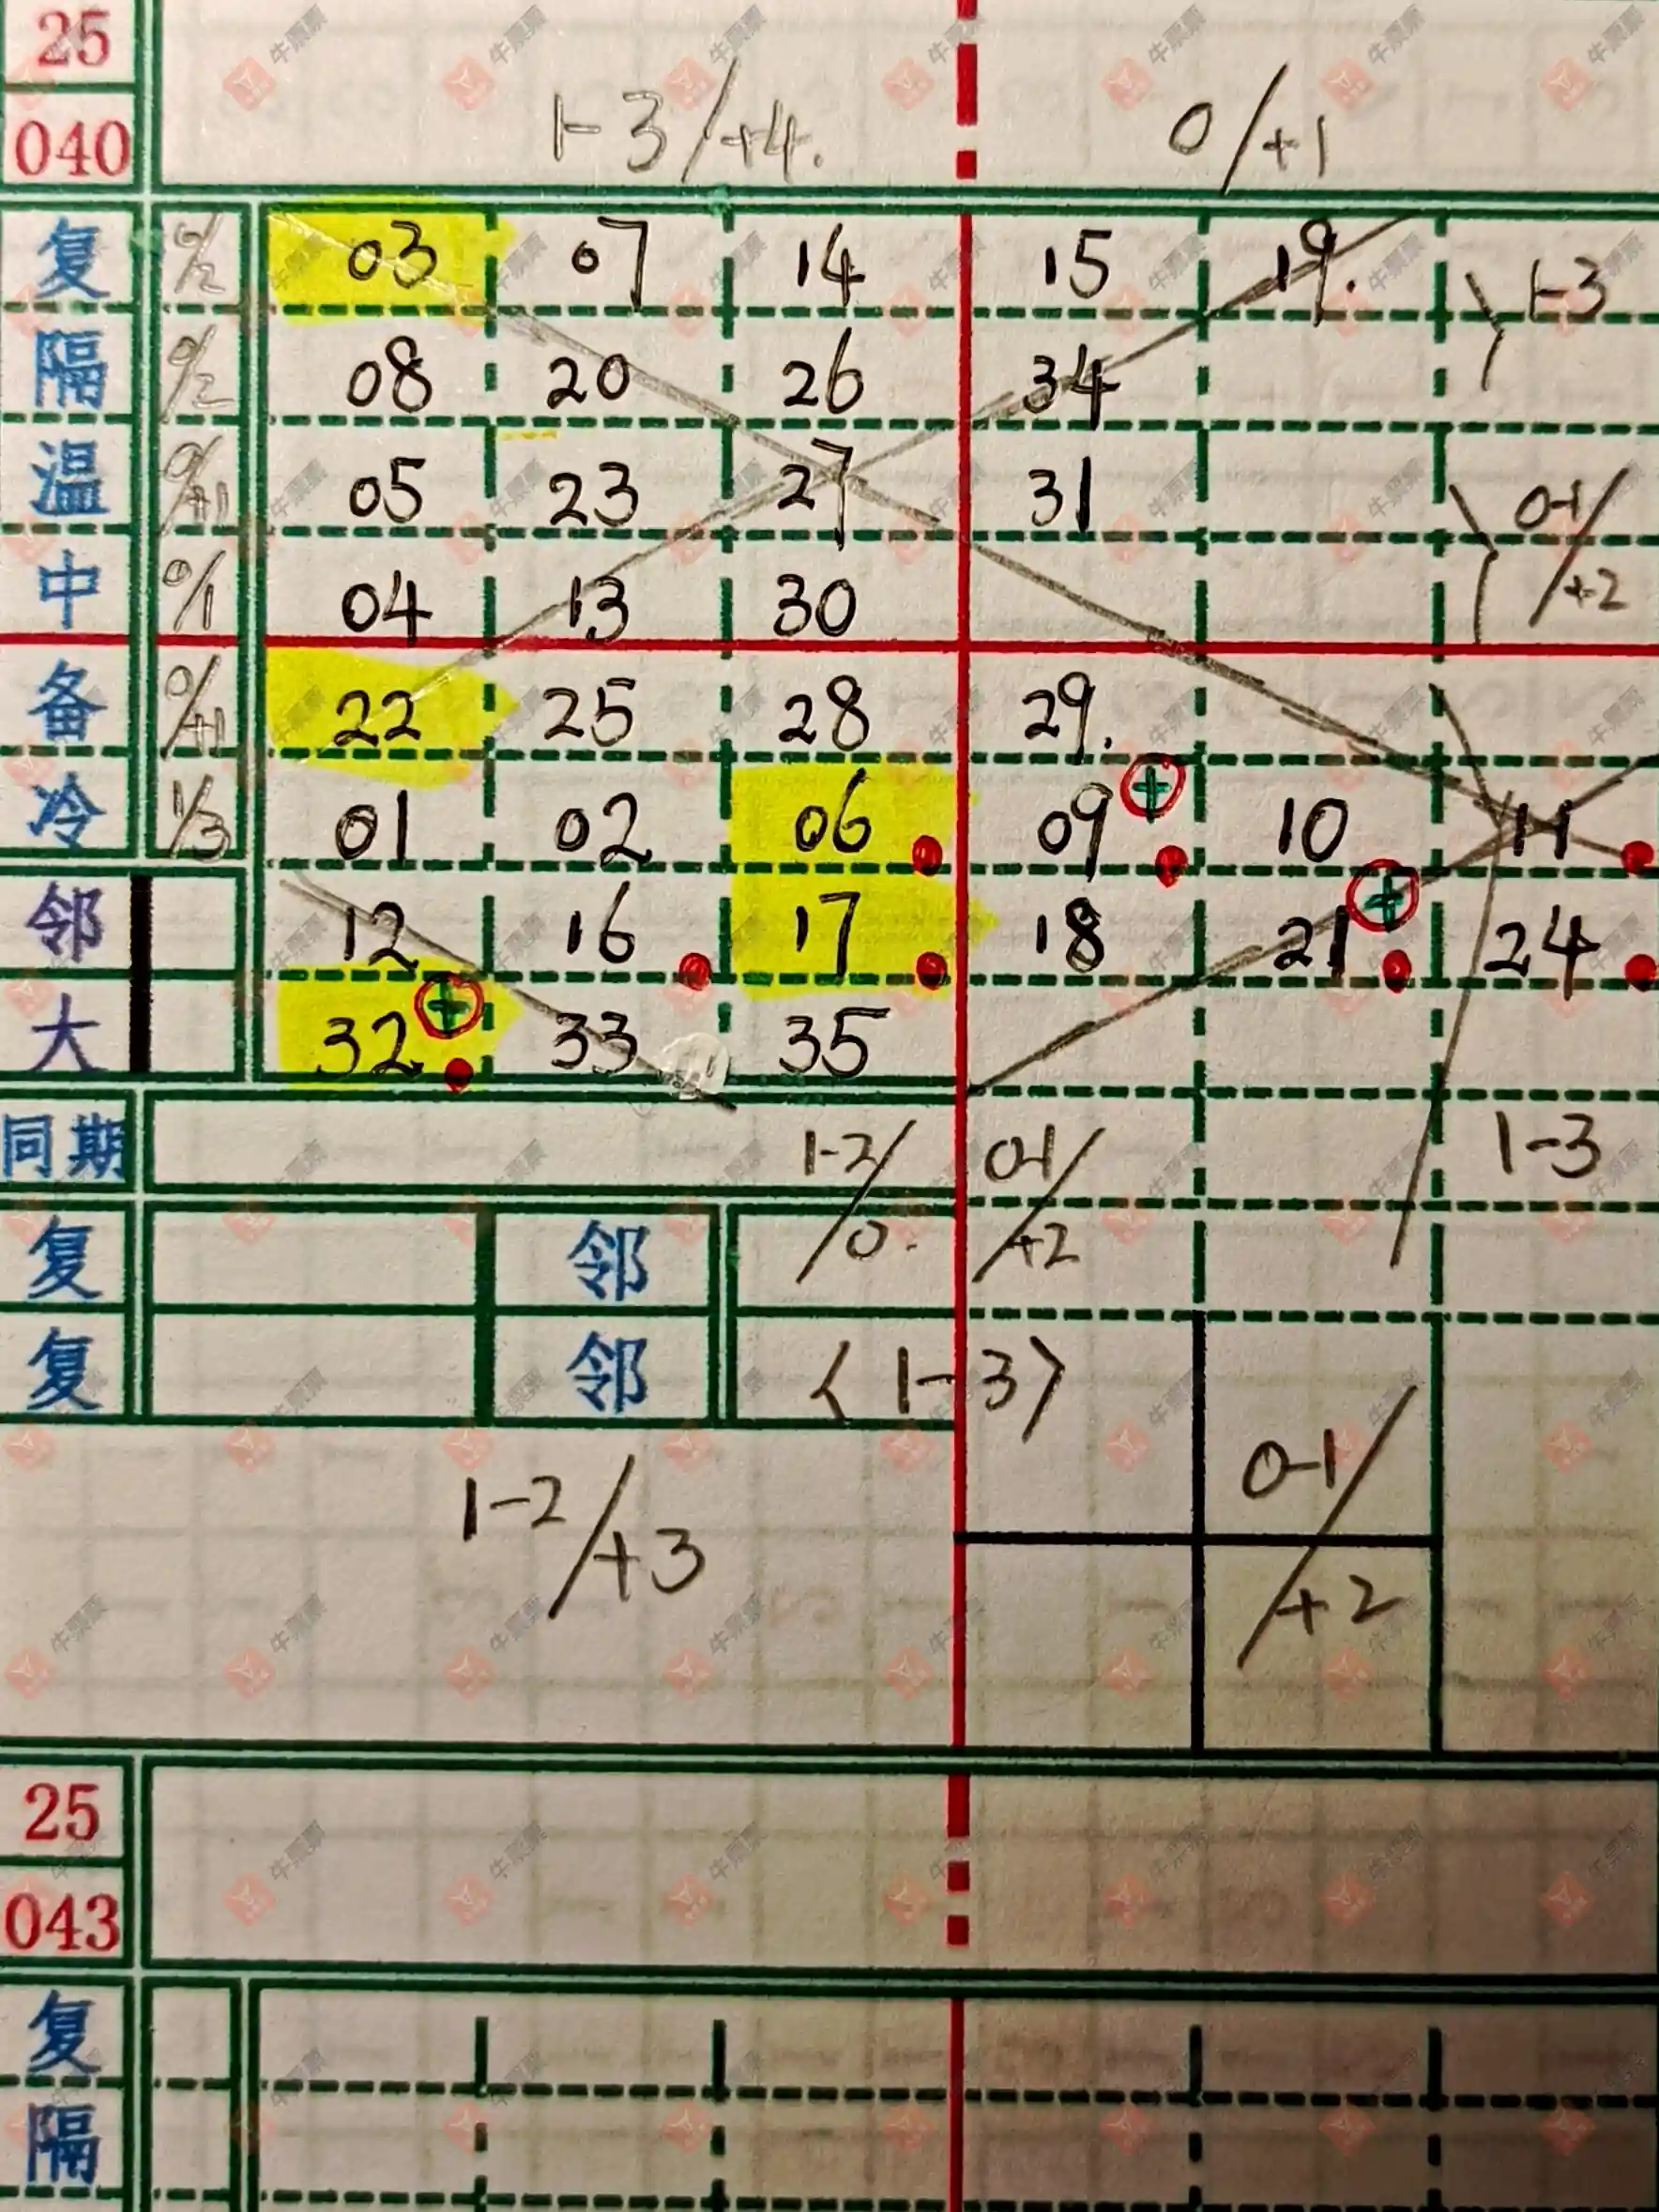 25
040 1-3/+4. 0/+1
复 0/2 03 07 14 15 19. 1-3
隔 0/2 08 20 26 34
温 0/+1 05 23 27 31 0-1/+2
中 0/1 04 13 30
备 0/+1 22 25 28 29.
冷 1/3 01 02 06 09 + 10 11
邻 12 16 17 18 21 + 24
大 32 + 33 35
同期 1-2/0. 0-1/+2 1-3
复 邻
复 邻 <1-3>
1-2/+3 0-1/+2
25
043
复
隔
牛票票